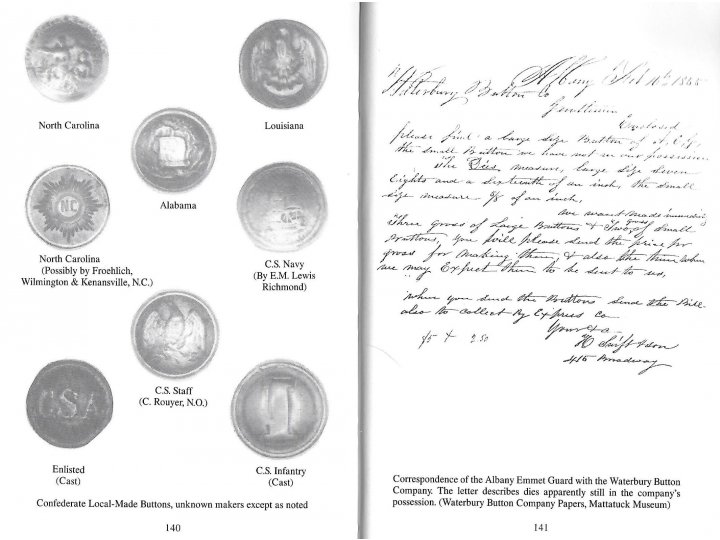 North Carolina
Louisiana
Alabama
NC
North Carolina
(Possibly by Froehlich,
Wilmington & Kenansville, N.C.)
C.S. Navy
(By E.M. Lewis
Richmond)
C.S. Staff
(C. Rouyer, N.O.)
CSA
I
Enlisted
(Cast)
C.S. Infantry
(Cast)
Confederate Local-Made Buttons, unknown makers except as noted
140
Albany 1865
Waterbury Button Co
Gentlemen
Enclosed
please find a large size Button of
the small Button we have not in our possession
The Dies measure, large size seven
Eights and a Sixteenth of an inch, the small
size measure 5/8 of an inch,
we want made immediately
Three gross of Large Buttons & Two gross of Small
Buttons, you will please send the price per
gross for making them & also the time when
we may Expect them to be sent to us,
When you send the Buttons send the Bill
also to collect by Express Co
Yours &c
H Swift & Son
415 Broadway
Correspondence of the Albany Emmet Guard with the Waterbury Button
Company. The letter describes dies apparently still in the company's
possession. (Waterbury Button Company Papers, Mattatuck Museum)
141